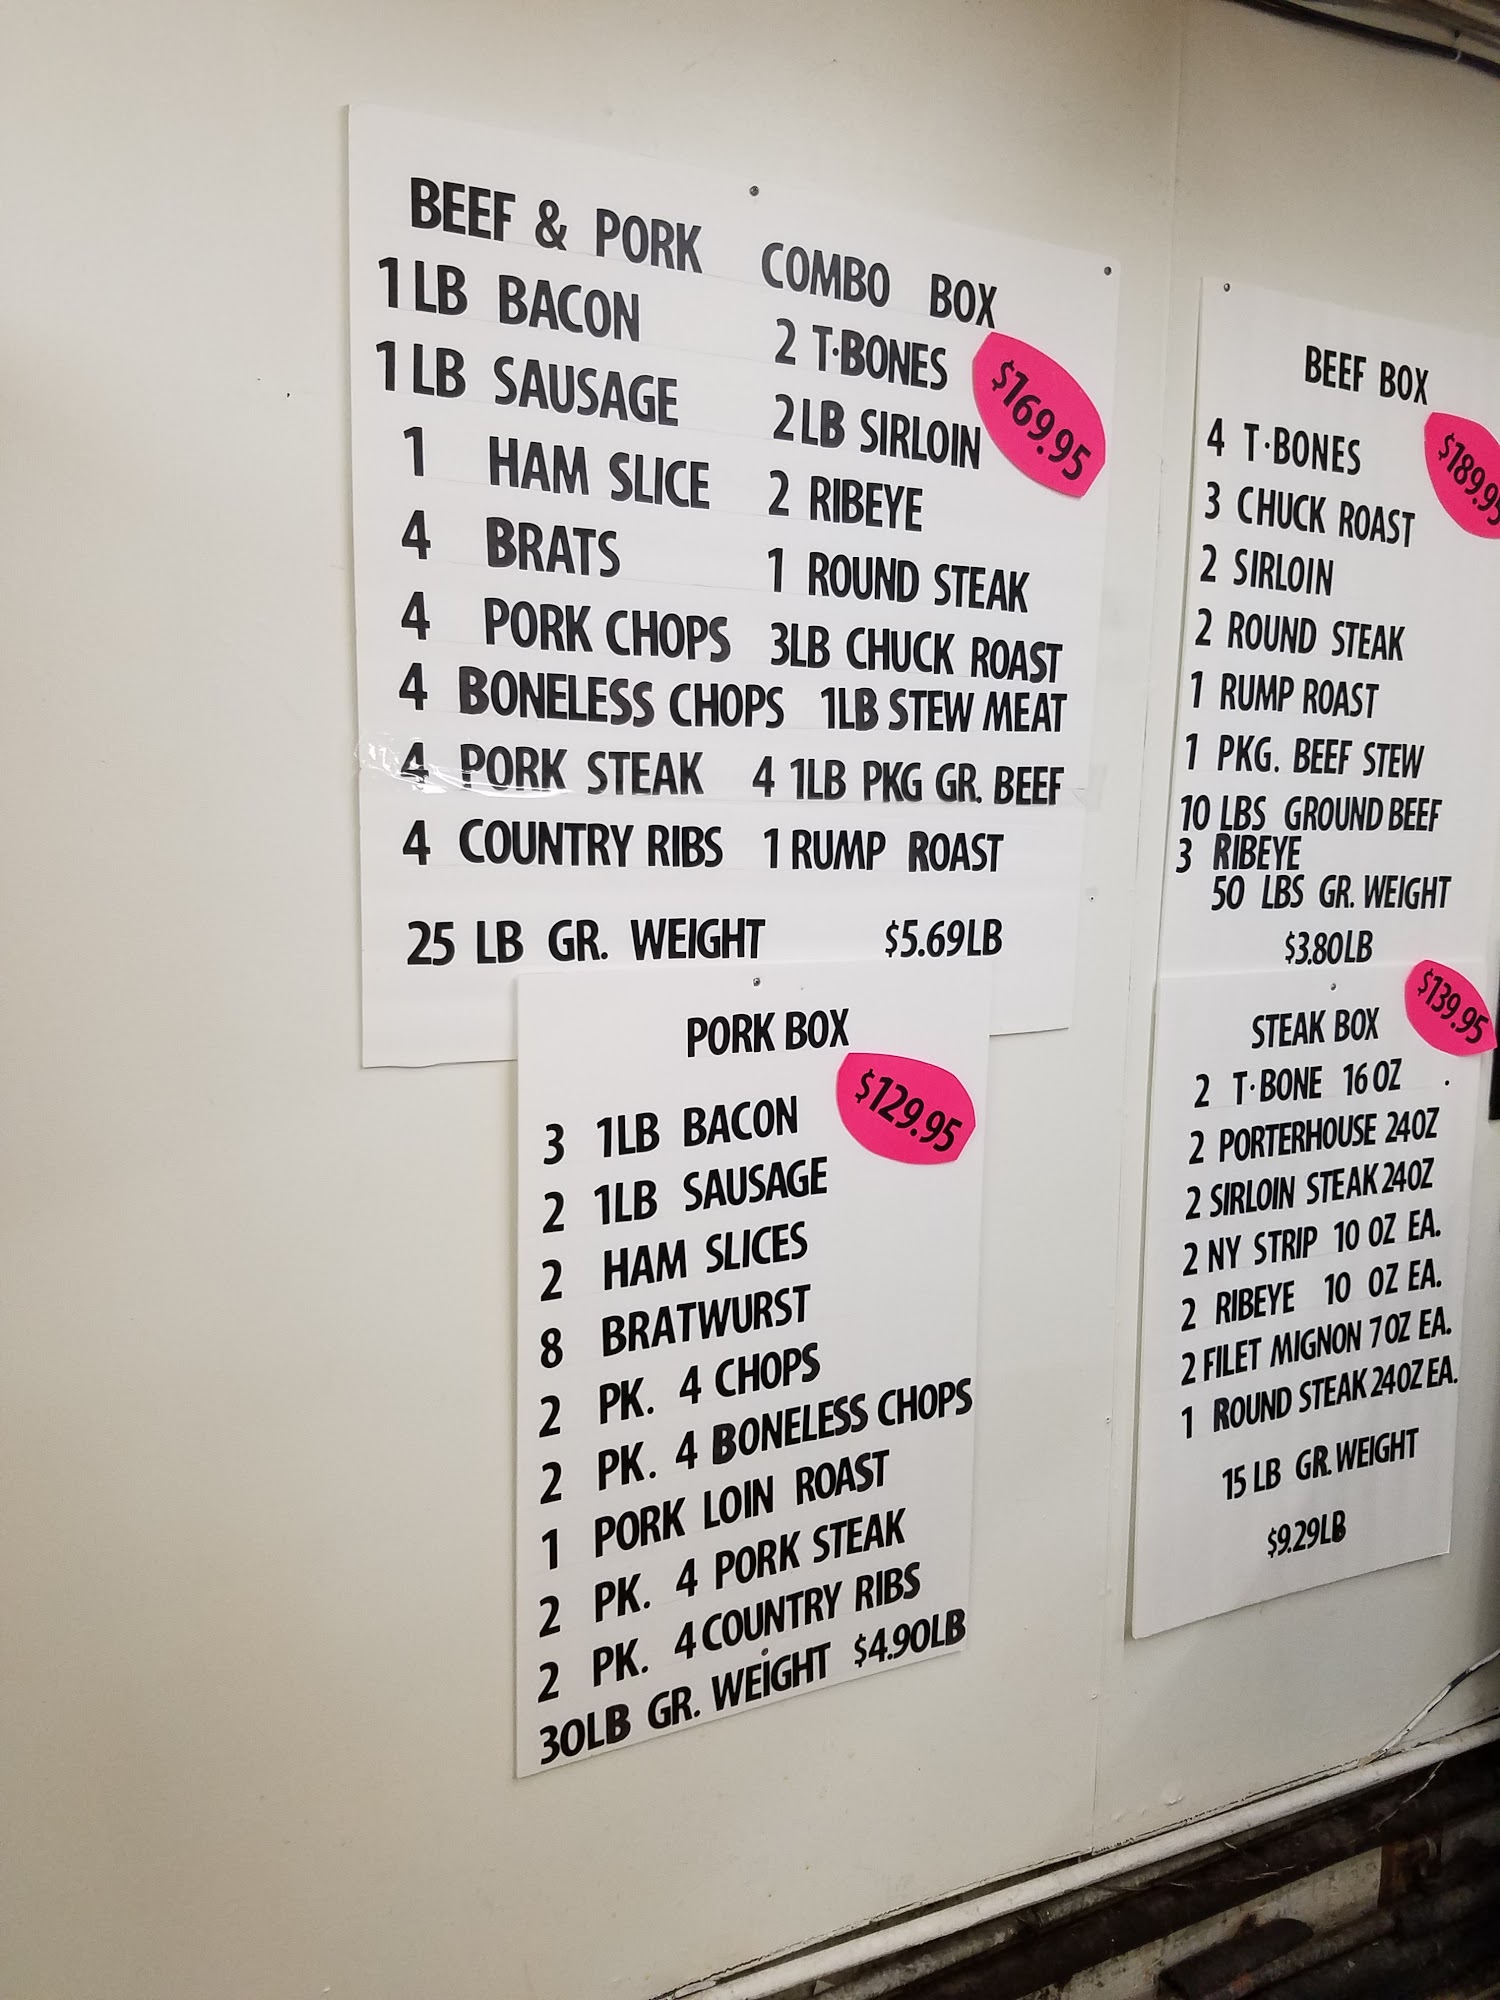 BEEF & PORK COMBO BOX
1 LB BACON 2 T·BONES
$169.95
1 LB SAUSAGE 2 LB SIRLOIN
1 HAM SLICE 2 RIBEYE
4 BRATS 1 ROUND STEAK
4 PORK CHOPS 3LB CHUCK ROAST
4 BONELESS CHOPS 1LB STEW MEAT
4 PORK STEAK 4 1LB PKG GR. BEEF
4 COUNTRY RIBS 1 RUMP ROAST
25 LB GR. WEIGHT $5.69LB
PORK BOX
$129.95
3 1LB BACON
2 1LB SAUSAGE
2 HAM SLICES
8 BRATWURST
2 PK. 4 CHOPS
2 PK. 4 BONELESS CHOPS
1 PORK LOIN ROAST
2 PK. 4 PORK STEAK
2 PK. 4 COUNTRY RIBS
30LB GR. WEIGHT $4.90LB
BEEF BOX
$189.95
4 T·BONES
3 CHUCK ROAST
2 SIRLOIN
2 ROUND STEAK
1 RUMP ROAST
1 PKG. BEEF STEW
10 LBS GROUND BEEF
3 RIBEYE
50 LBS GR. WEIGHT
$3.80LB
STEAK BOX
$139.95
2 T·BONE 16 OZ
2 PORTERHOUSE 24OZ
2 SIRLOIN STEAK 24OZ
2 NY STRIP 10 OZ EA.
2 RIBEYE 10 OZ EA.
2 FILET MIGNON 7 OZ EA.
1 ROUND STEAK 24OZ EA.
15 LB GR. WEIGHT
$9.29LB